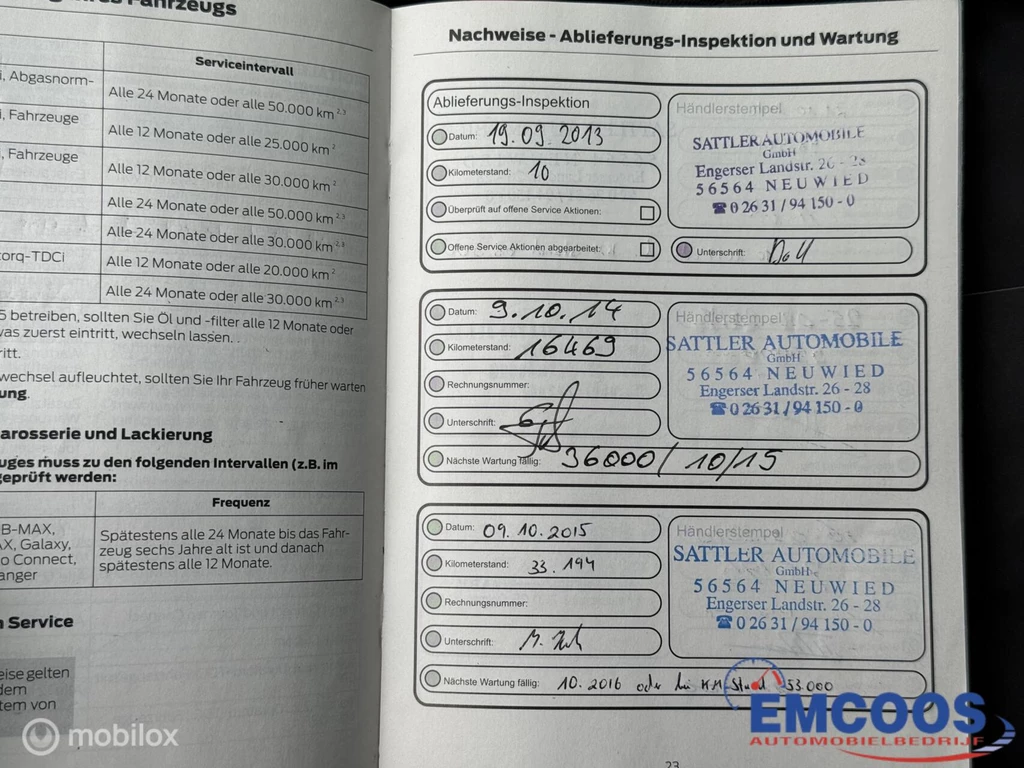 Fahrzeugs
Serviceintervall
i, Abgasnorm-
Alle 24 Monate oder alle 50.000 km 2,3
i, Fahrzeuge
Alle 12 Monate oder alle 25.000 km 2
, Fahrzeuge
Alle 12 Monate oder alle 30.000 km 2
Alle 24 Monate oder alle 50.000 km 2,3
Alle 24 Monate oder alle 30.000 km 2,3
torq-TDCi
Alle 12 Monate oder alle 20.000 km 2
Alle 24 Monate oder alle 30.000 km 2,3
5 betreiben, sollten Sie Öl und -filter alle 12 Monate oder
was zuerst eintritt, wechseln lassen. .
ritt.
wechsel aufleuchtet, sollten Sie Ihr Fahrzeug früher warten
ung.
arosserie und Lackierung
uges muss zu den folgenden Intervallen (z.B. im
geprüft werden:
Frequenz
B-MAX,
AX, Galaxy,
o Connect,
anger
Spätestens alle 24 Monate bis das Fahr-
zeug sechs Jahre alt ist und danach
spätestens alle 12 Monate.
n Service
eise gelten
dem
tem von
Nachweise - Ablieferungs-Inspektion und Wartung
Ablieferungs-Inspektion
Datum: 19.09.2013
Kilometerstand: 10
Überprüft auf offene Service Aktionen:
Offene Service Aktionen abgearbeitet:
Händlerstempel
SATTLER AUTOMOBILE
GmbH
Engerser Landstr. 26 - 28
56564 NEUWIED
☎ 0 26 31 / 94 150 - 0
Unterschrift:
Datum: 9.10.14
Kilometerstand: 16469
Rechnungsnummer:
Unterschrift:
Nächste Wartung fällig: 36000/10/15
Händlerstempel
SATTLER AUTOMOBILE
GmbH
56564 NEUWIED
Engerser Landstr. 26 - 28
☎ 0 26 31 / 94 150 - 0
Datum: 09.10.2015
Kilometerstand: 33.194
Rechnungsnummer:
Unterschrift:
Nächste Wartung fällig: 10.2016 oder bei KM Stand 53.000
Händlerstempel
SATTLER AUTOMOBILE
GmbH
56564 NEUWIED
Engerser Landstr. 26 - 28
☎ 0 26 31 / 94 150 - 0
23
mobilox
EMCOOS
AUTOMOBIELBEDRIJF